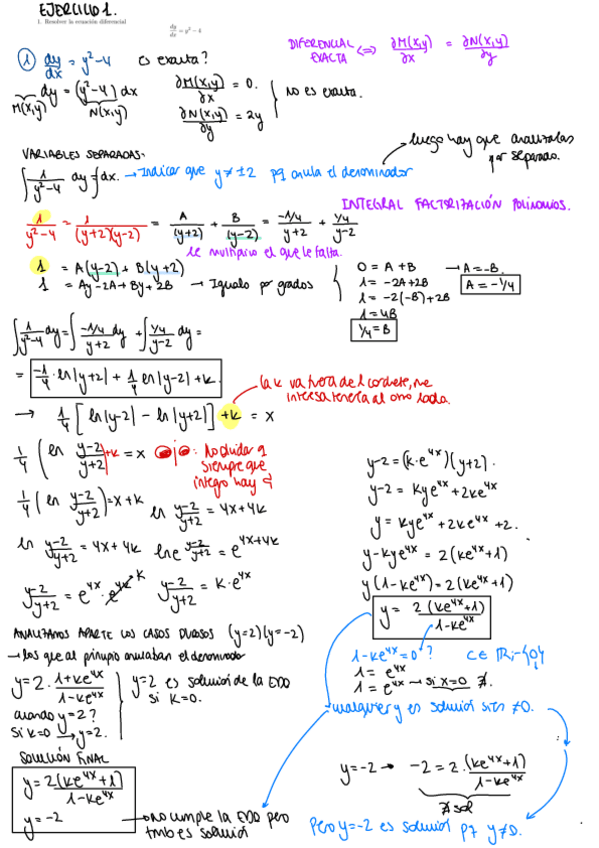 EJERCICIO 1.
1. Resolver la ecuación diferencial
dy/dx = y² - 4
① dy/dx = y² - 4 es exacta?
DIFERENCIAL EXACTA <=> ∂M(x,y)/∂x = ∂N(x,y)/∂y
dy = (y² - 4) dx
M(x,y) N(x,y)
∂M(x,y)/∂x = 0.
∂N(x,y)/∂y = 2y
no es exacta.
luego hay que analizarlas por separado.
VARIABLES SEPARADAS:
∫ 1/(y²-4) dy = ∫dx. → Indicar que y ≠ ±2 pq anula el denominador
INTEGRAL FACTORIZACIÓN POLINOMIOS.
1/(y²-4) = 1/((y+2)(y-2)) = A/(y+2) + B/(y-2) = (-1/4)/(y+2) + (1/4)/(y-2)
le multiplico el que le falta.
1 = A(y-2) + B(y+2)
1 = Ay - 2A + By + 2B → Igualo por grados
0 = A + B → A = -B.
1 = -2A + 2B
A = -1/4
1 = -2(-B) + 2B
1 = 4B
1/4 = B
∫ 1/(y²-4) dy = ∫ (-1/4)/(y+2) dy + ∫ (1/4)/(y-2) dy =
= -1/4 · ln|y+2| + 1/4 ln|y-2| + k.
→ 1/4 [ln|y-2| - ln|y+2|] + k = x
la k va fuera del corchete, me interesa tenerla al otro lado.
1/4 (ln (y-2)/(y+2) + k = x
No olvidar q siempre que integro hay
1/4 (ln (y-2)/(y+2)) = x + k
ln (y-2)/(y+2) = 4x + 4k
ln (y-2)/(y+2) = 4x + 4k
ln e (y-2)/(y+2) = e^(4x+4k)
(y-2)/(y+2) = e^4x · e^4k K
(y-2)/(y+2) = k·e^4x
y-2 = (k·e^4x)(y+2).
y-2 = kye^4x + 2ke^4x
y = kye^4x + 2ke^4x + 2.
y - kye^4x = 2(ke^4x + 1)
y(1 - ke^4x) = 2(ke^4x + 1)
y = 2(ke^4x + 1)/(1 - ke^4x)
1 - ke^4x = 0? C ∈ ℝ - {0}
1 = e^4x
1 = e^4x → si x=0 ∄.
→ cualquier y es solución si es ≠ 0.
ANALIZAMOS APARTE LOS CASOS DUDOSOS (y=2)(y=-2)
→ los que al principio anulaban el denominador
y = 2 · (1+ke^4x)/(1-ke^4x)
cuando y=2?
si k=0 → y=2.
y=2 es solución de la EDO si K=0.
SOLUCIÓN FINAL
y = 2(ke^4x+1)/(1-ke^4x)
y = -2
→ no cumple la EDO pero tmb es solución
y=-2 → -2 = 2·(ke^4x+1)/(1-ke^4x)
∄ sol
Pero y=-2 es solución pq y≠0.